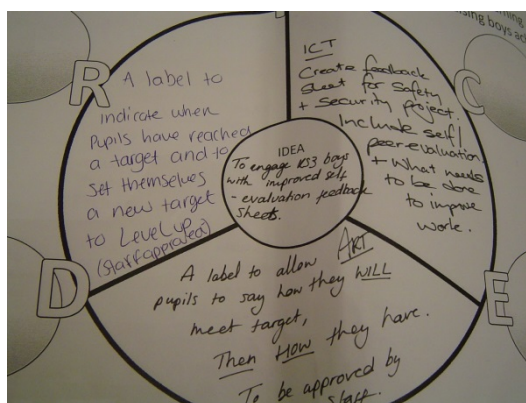 sing boys ac
R
A label to
indicate when
Pupils have reached
a target and to
set themselves
a new target
to Level up
(Staff approved)
ICT
Create feedback
sheet for Safety
+ security project.
Include self/
peer evaluation
+ What needs
to be done
to improve
work.
C
IDEA
To engage KS3 boys
with improved self
- evaluation feedback
sheets.
D
ART
A label to allow
pupils to say how they WILL
meet target,
Then How they have.
To be approved by
staff.
E